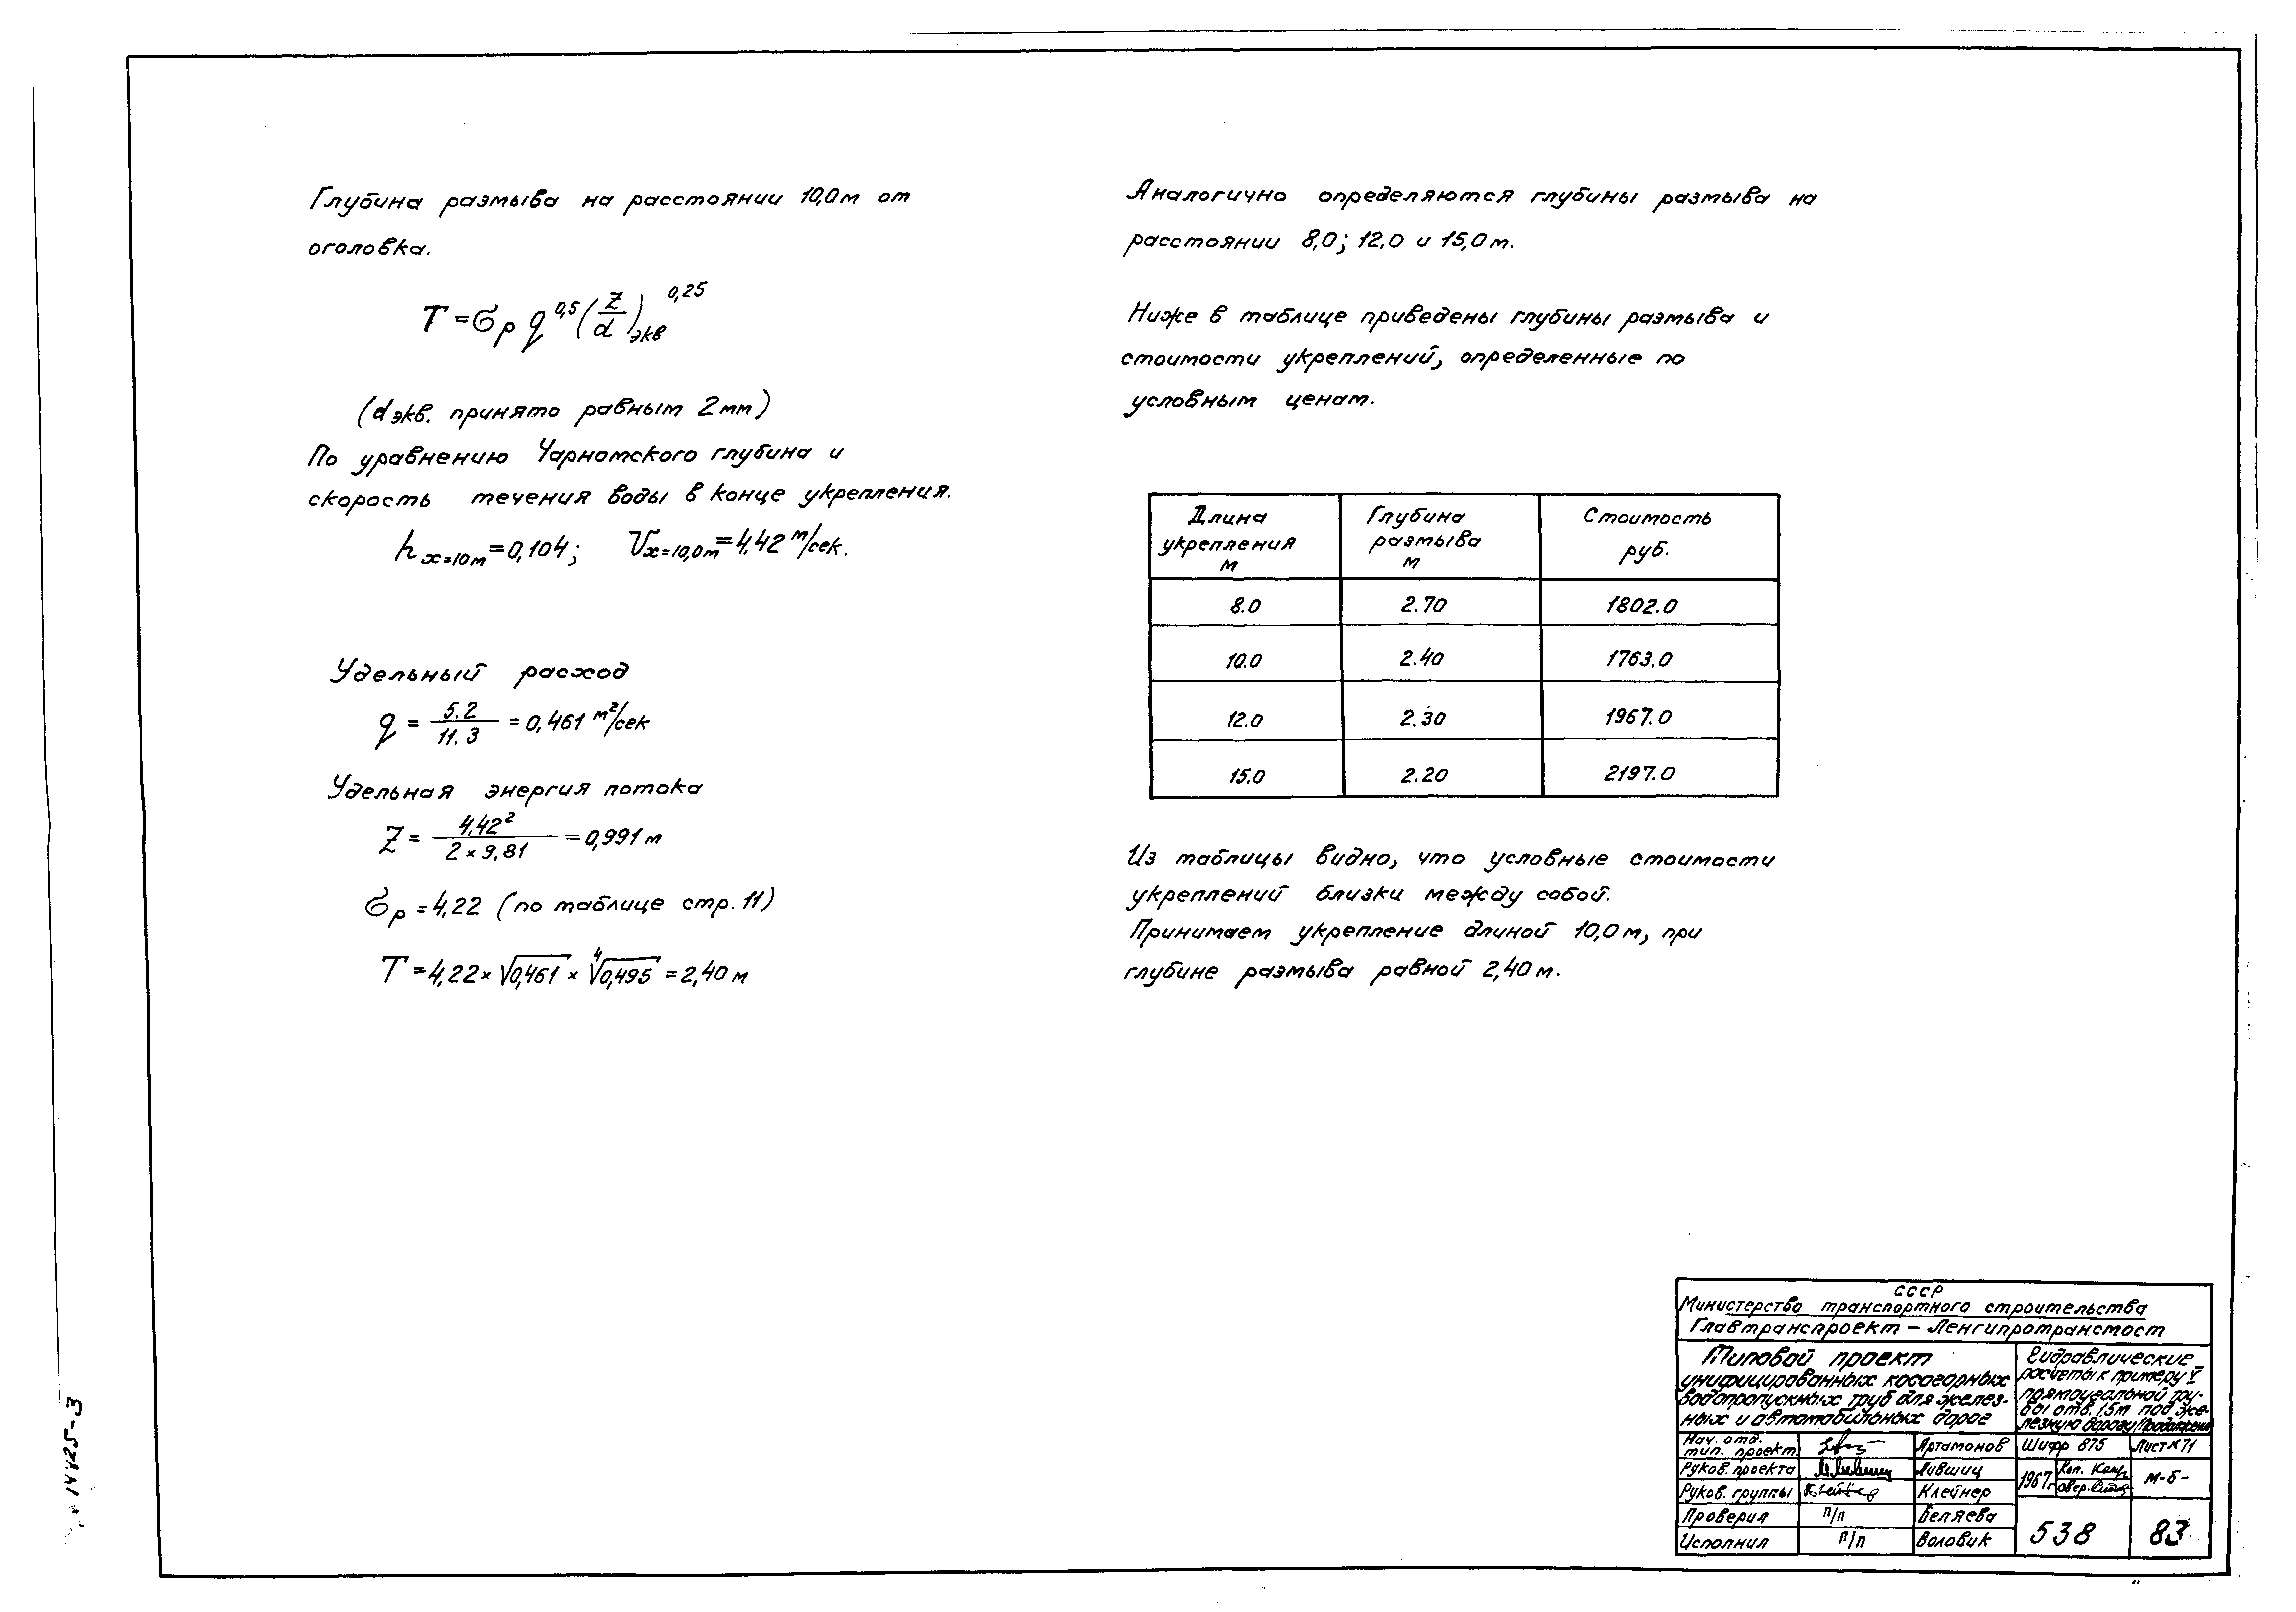 Глубина размыва на расстоянии 10,0м от
оголовка.
T = σр q^0,5 (z/d)экв^0,25
(dэкв. принято равным 2мм)
По уравнению Чарномского глубина и
скорость течения воды в конце укрепления.
h x=10м = 0,104; Vx=10,0м = 4,42 м/сек.
Удельный расход
q = 5.2/11.3 = 0,461 м²/сек
Удельная энергия потока
Z = 4,42²/2×9,81 = 0,991 м
σр = 4,22 (по таблице стр. 11)
T = 4,22 × √0,461 × ⁴√0,495 = 2,40 м
Аналогично определяются глубины размыва на
расстоянии 8,0; 12.0 и 15,0м.
Ниже в таблице приведены глубины размыва и
стоимости укреплений, определенные по
условным ценам.
Длина укрепления м | Глубина размыва м | Стоимость руб.
8.0 | 2.70 | 1802.0
10.0 | 2.40 | 1763.0
12.0 | 2.30 | 1967.0
15.0 | 2.20 | 2197.0
Из таблицы видно, что условные стоимости
укреплений близки между собой.
Принимаем укрепление длиной 10,0м, при
глубине размыва равной 2,40м.
СССР
Министерство транспортного строительства
Главтранспроект – Ленгипротрансмост
Типовой проект
унифицированных косогорных
водопропускных труб для желез-
ных и автомобильных дорог
Гидравлические
расчеты к примеру V
прямоугальной тру-
бы отв. 1,5м под же-
лезную дорогу
Нач. отд. тип. проект Артамонов
Руков. проекта Лившиц
Руков. группы Клейнер
Проверил п/п Беляева
Исполнил п/п Воловик
Шифр 875 Лист №71
1967г. М-б-
538 83
14425-3